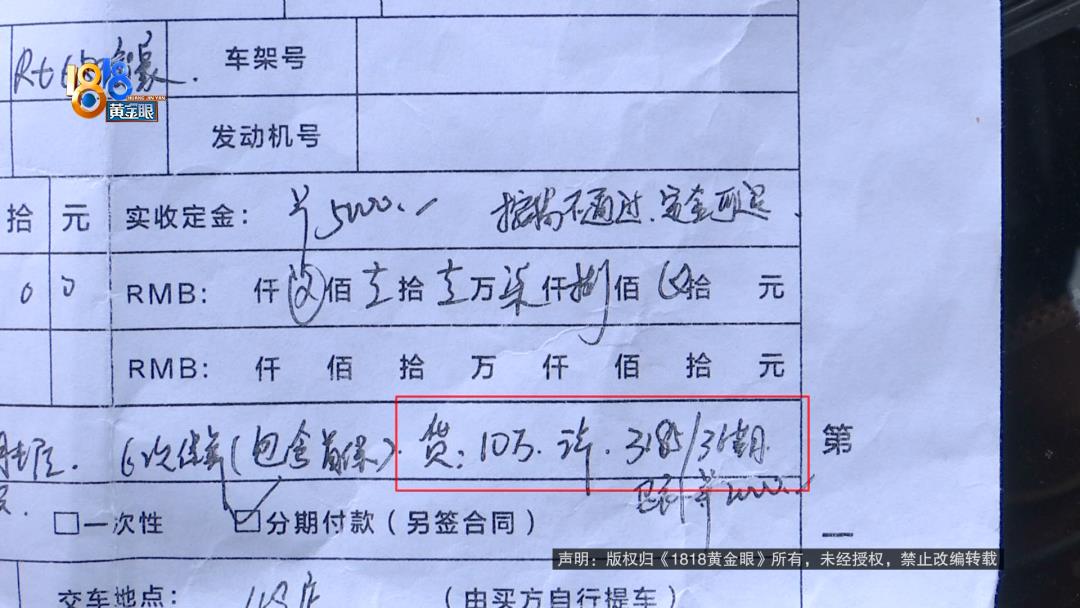 车架号
1818
黄金眼
发动机号
拾 元 实收定金: ¥5000. 不通过. 定金可退
0 0 RMB: 仟 佰 壹拾 壹万 柒仟 捌佰 拾 元
RMB: 仟 佰 拾 万 仟 佰 拾 元
6次保养(包含首保). 贷: 10万. 36期 第
2000.
□一次性 ☑分期付款(另签合同)
声明:版权归《1818黄金眼》所有,未经授权,禁止改编转载
交车地点: (由买方自行提车)